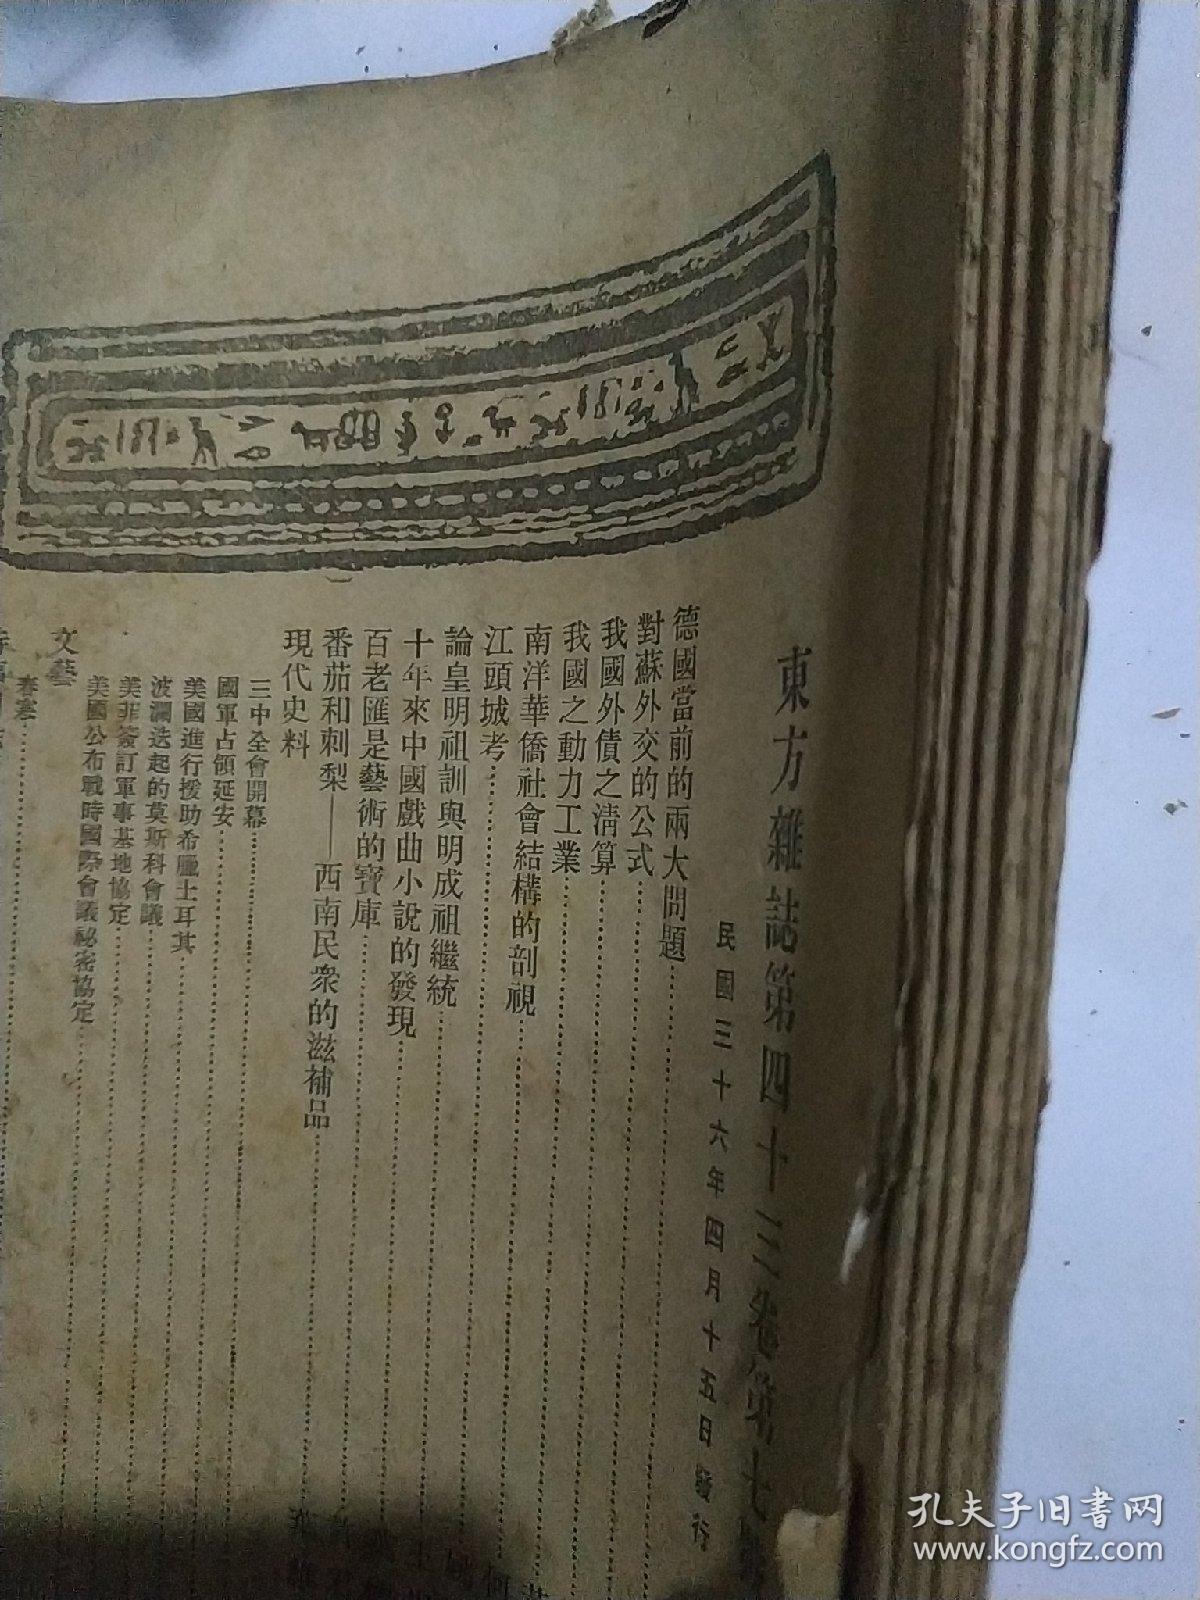 東方雜誌第四十三卷第七號
民國三十六年四月十五日發行
德國當前的兩大問題
對蘇外交的公式
我國外債之清算
我國之動力工業
南洋華僑社會結構的剖視
江頭城考
論皇明祖訓與明成祖繼統
十年來中國戲曲小說的發現
百老匯是藝術的寶庫
番茄和刺梨——西南民衆的滋補品
現代史料
三中全會開幕
國軍占領延安
美國進行援助希臘土耳其
波瀾迭起的莫斯科會議
美菲簽訂軍事基地協定
美國公布戰時國際會議祕密協定
文藝
春寒
孔夫子旧书网
www.kongfz.com